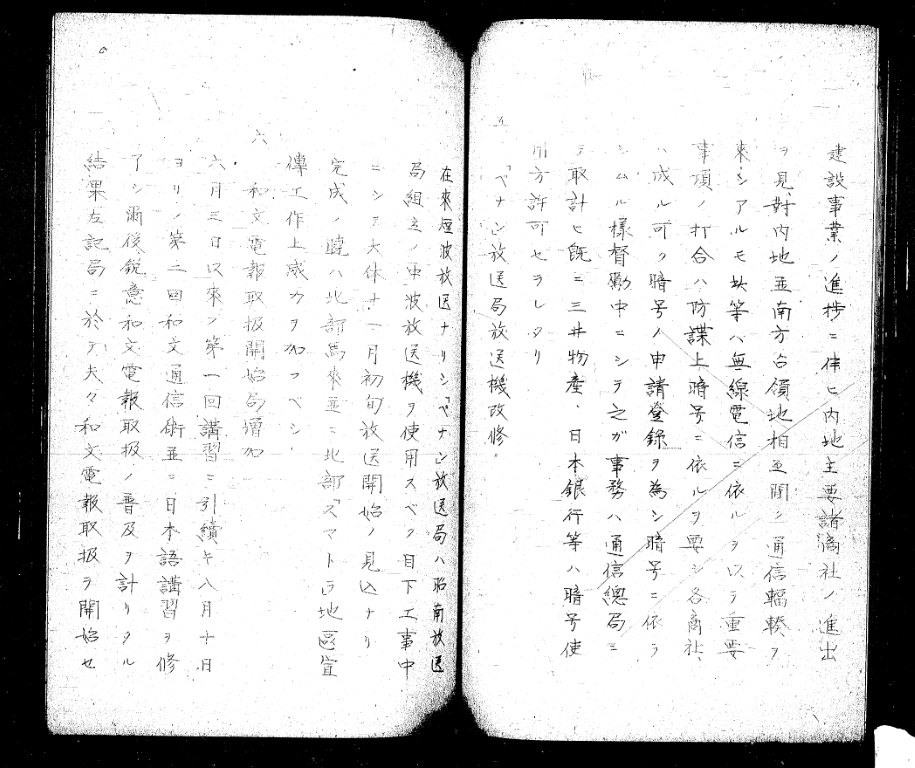 建設事業ノ進捗ニ伴ヒ内地主要諸商社ノ進出
ヲ見、対内地並南方占領地相互間ノ通信輻輳ヲ
来シアルモ此等ハ無線電信ニ依ルヲ以テ重要
事項ノ打合ハ防諜上暗号ニ依ルヲ要シ各商社
ハ成ル可ク暗号ノ申請登録ヲ為シ暗号ニ依ラ
シムル様督励中ニシテ之ガ事務ハ通信総局ニ
テ取計ヒ既ニ三井物産、日本銀行等ハ暗号使
用方許可セラレタリ
五
「ペナン」放送局放送機改修
在来短波放送ナリシ「ペナン」放送局ハ昭南放送
局組立ノ中波放送機ヲ使用スベク目下工事中
ニシテ大体十一月初旬放送開始ノ見込ナリ
完成ノ暁ハ北部馬来並ニ北部「スマトラ」地区宣
傳工作上威力ヲ加フベシ
六
和文電報取扱開始局増加
六月三日以来ノ第一回講習ニ引続キ八月十日
ヨリノ第二回和文通信術並ニ日本語講習ヲ修
了シ爾後鋭意和文電報取扱ノ普及ヲ計リタル
結果左記局ニ於テ夫々和文電報取扱ヲ開始セ